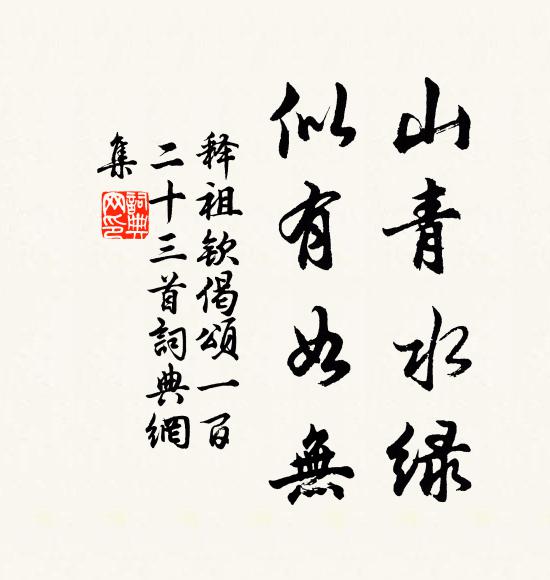 山青水绿
似有如無
释祖钦偈颂一百
二十三首詞典網
集
詞典
网印